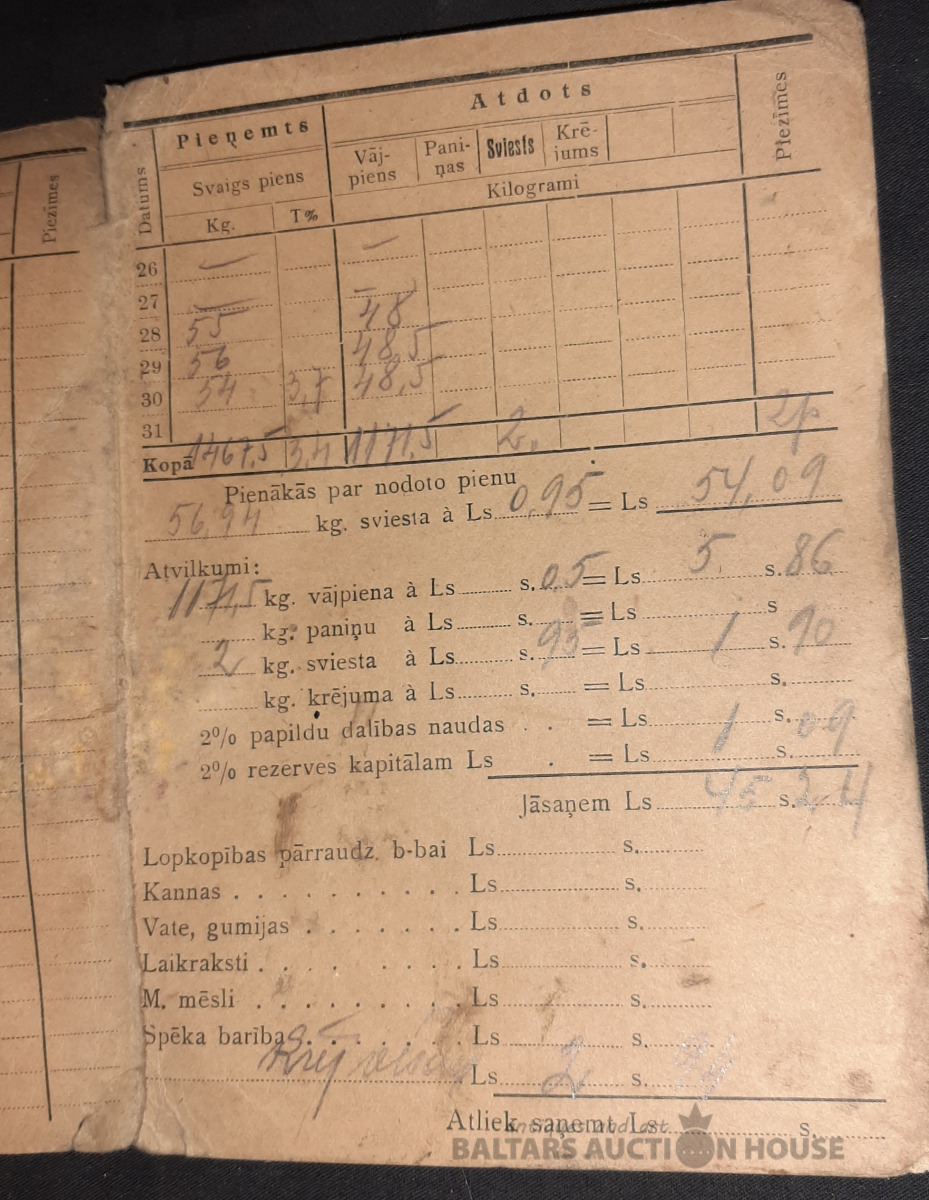 Piezīmes
Datums Pieņemts Atdots Piezīmes
Svaigs piens Vāj-piens Pani-ņas Sviests Krē-jums
Kg. T% Kilogrami
26 — —
27 — —
28 55 48
29 56 48,5
30 54 3,7 48,5
31
Kopā 1467,5 3,4 1171,5 2,
Pienākās par nodoto pienu
56,94 kg. sviesta à Ls 0,95 = Ls 54,09
Atvilkumi:
1171,5 kg. vājpiena à Ls s. 0,5 = Ls 5 s. 86
kg. paniņu à Ls s. = Ls s
2 kg. sviesta à Ls s. 95 = Ls 1 s. 90
kg. krējuma à Ls s. = Ls s.
2% papildu dalības naudas . . = Ls 1 s. 09
2% rezerves kapitālam Ls . = Ls s.
Jāsaņem Ls 45 s. 24
Lopkopības pārraudz. b-bai Ls s.
Kannas . . . . . . . . . . Ls s.
Vate, gumijas . . . . . . . Ls s.
Laikraksti . . . . . . . . Ls s.
M. mēsli . . . . . . . . . Ls s.
Spēka barība . . . . . . . Ls s.
Ls 2 s.
Atliek saņemt Ls s.
BALTARS AUCTION HOUSE